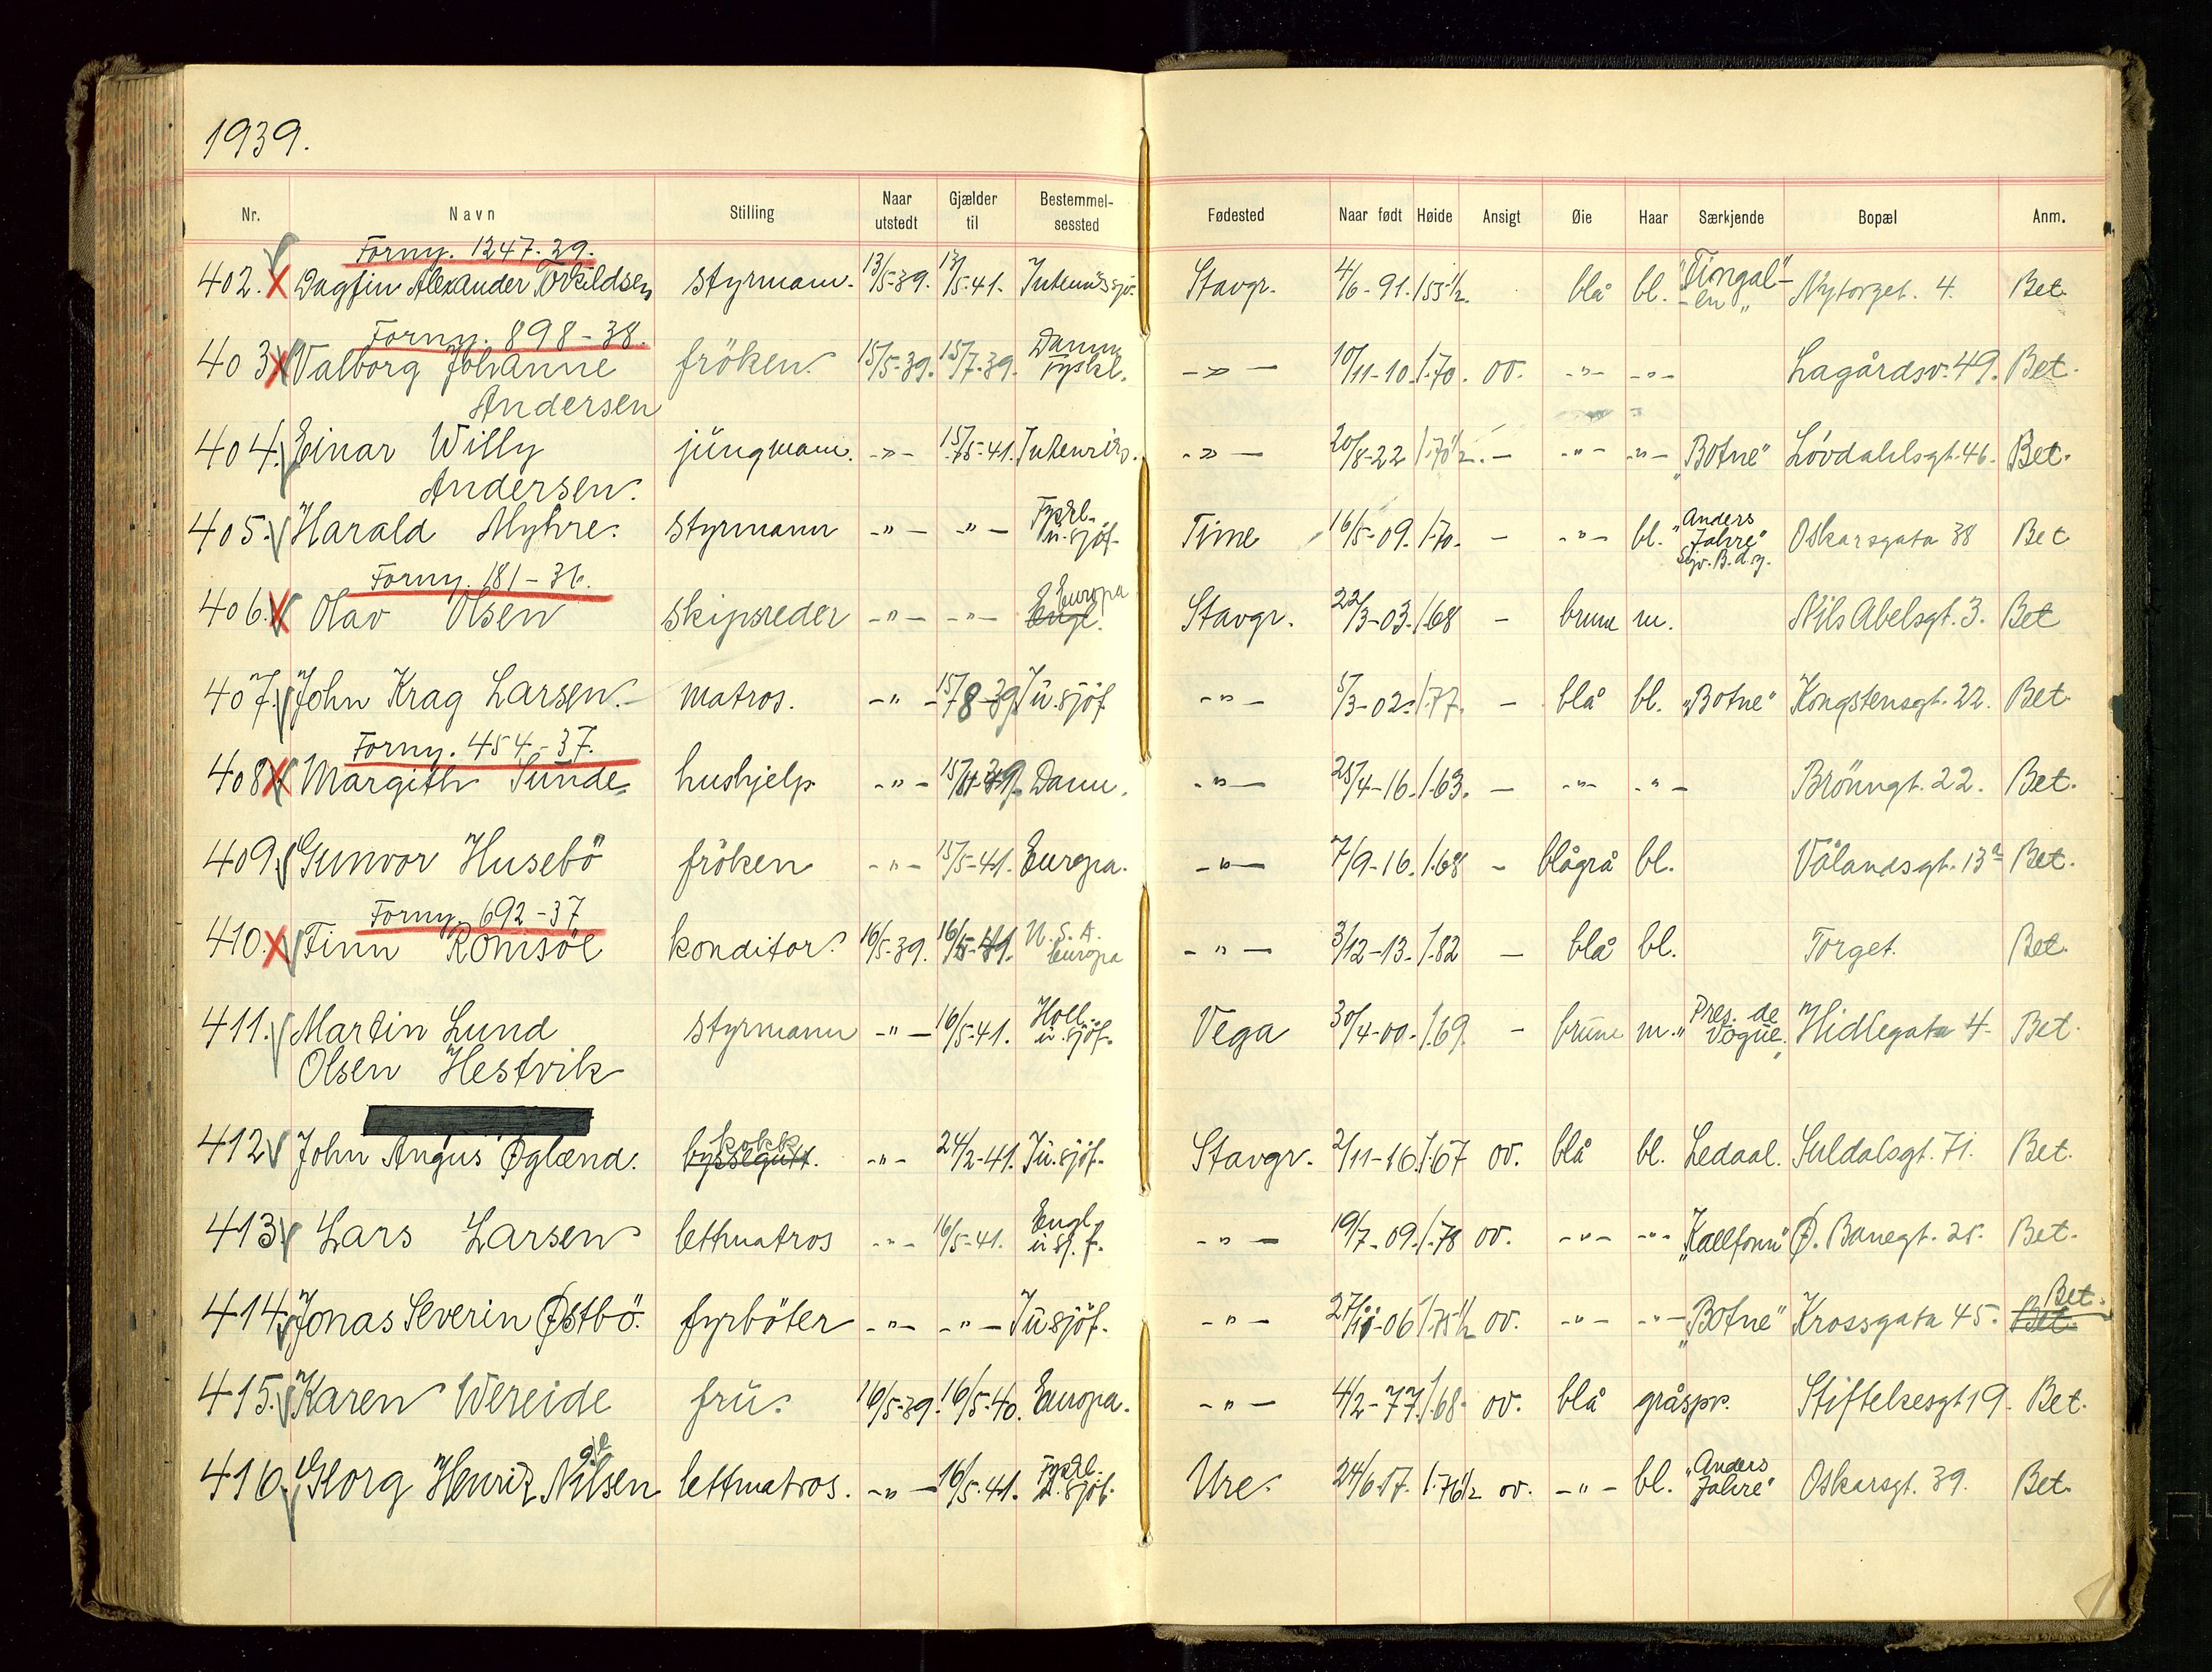 1939.
Nr. Navn Stilling Naar utstedt Gjælder til Bestemmel-sessted Fødested Naar født Høide Ansigt Øie Haar Særkjende Bopæl Anm.
Forny. 1247-29.
402. Dagfin Alexander Torkildsen styrmann. 13/5-39. 13/5-41. Stavgr. 4/6-91. 1.55½. blå bl. Nytorget. 4. Bet.
Forny. 898-38.
403 Valborg Johanne fröken 15/5-39. 15/7-39. Danm. Tyskl. -"- 10/11-10. 1.70. ov. -"- -"- Lagårdsv. 49. Bet.
Andersen
404. Einar Willy jüngmann. -"- 15/5-41. Intenriks. -"- 20/8-22 1.70½. - -"- -"- "Botne" Lövdahlsgt. 46. Bet.
Andersen.
405. Harald Myhre. styrmann -"- -"- Tyskl. ü.sjöf. Time 16/5-09. 1.70. - -"- bl. "Anders Jahre" Oskarsgata 38 Bet
Forny. 181-36.
406. Olav Olsen skipsreder -"- -"- Europa Engl. Stavgr. 22/3-03. 1.68 - brune m. Nils Abelsgt. 3. Bet
407. John Krag Larsen. matros. -"- 15/8-39 Ü.sjöf -"- 5/3-02. 1.77. - blå bl. "Botne" Kongstensgt. 22. Bet.
Forny. 454-37.
408 Margith Sünde hushjelp -"- Danm. -"- 25/4-16. 1.63. - -"- -"- Brönngt. 22. Bet.
409. Gunvor Husebö fröken -"- 15/5-41. Europa. -"- 7/9-16. 1.68 - blågrå bl. Vålandsgt. 13a Bet.
Forny. 692-37
410. Finn konditor. 16/5-39. 16/5-41. U.S.A. Europa -"- 3/12-13. 1.82 - blå bl. Torget. Bet.
411. Martin Lund styrmann -"- 16/5-41. Holl. ü.sjöf. Vega 30/4-00. 1.69. - brüne m. "Pres. de Vogüe" Hidlegata 4. Bet.
Olsen Hestvik
412 John Angus Øglænd. kokk byssegutt. -"- 24/2-41. Ü.sjöf. Stavgr. 2/11-16. 1.67 ov. blå bl. Ledaal. Suldalsgt. 71. Bet.
413 Lars Larsen lettmatros -"- 16/5-41. Engl. ü.sj.f. -"- 19/7-09. 1.78 ov. -"- -"- Ø. Banegt. 25. Bet.
414. Jonas Severin Østbö. fyrböter -"- -"- Ü.sjöf. -"- 27/11-06 1.75½ ov. -"- -"- "Botne" Krossgata 45. Bet. Bet.
415. Karen Wereide frü. 16/5-39. 16/5-40. Europa. -"- 4/2-77. 1.68. ov. blå gråspr. Stiftelsesgt 19. Bet.
416. Georg Henrik Nilsen lettmatros. -"- 16/5-41. Tyskl. ü.sjöf. Ure. 24/6-17. 1.76½ ov. -"- bl. "Anders Jahre" Oskarsgt. 39. Bet.